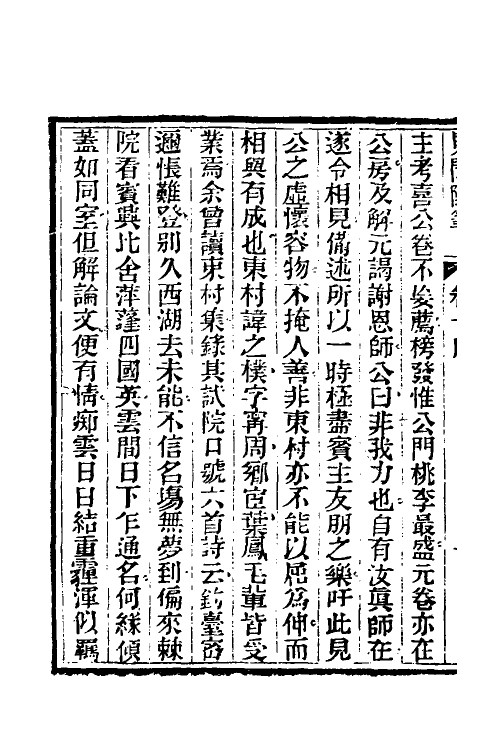 主考喜公卷不俟薦榜發惟公門桃李最盛元卷亦在
公房及解元謁謝恩師公曰非我力也自有汝真師在
遂令相見備述所以一時極盡賓主友朋之樂吁此見
公之虛懷容物不掩人善非東村亦不能以屈為伸而
相與有成也東村諱之樸字甯周鄉宦葉鳳毛輩皆受
業焉余曾讀東村集錄其試院口號六首詩云釣臺咨
邇悵難登別久西湖去未能不信名場無夢到偏來棘
院看賓興比舍萍蓬四國英雲間日下乍通名何緣傾
蓋如同室但解論文便有情痴雲日日結重霾渾似羈